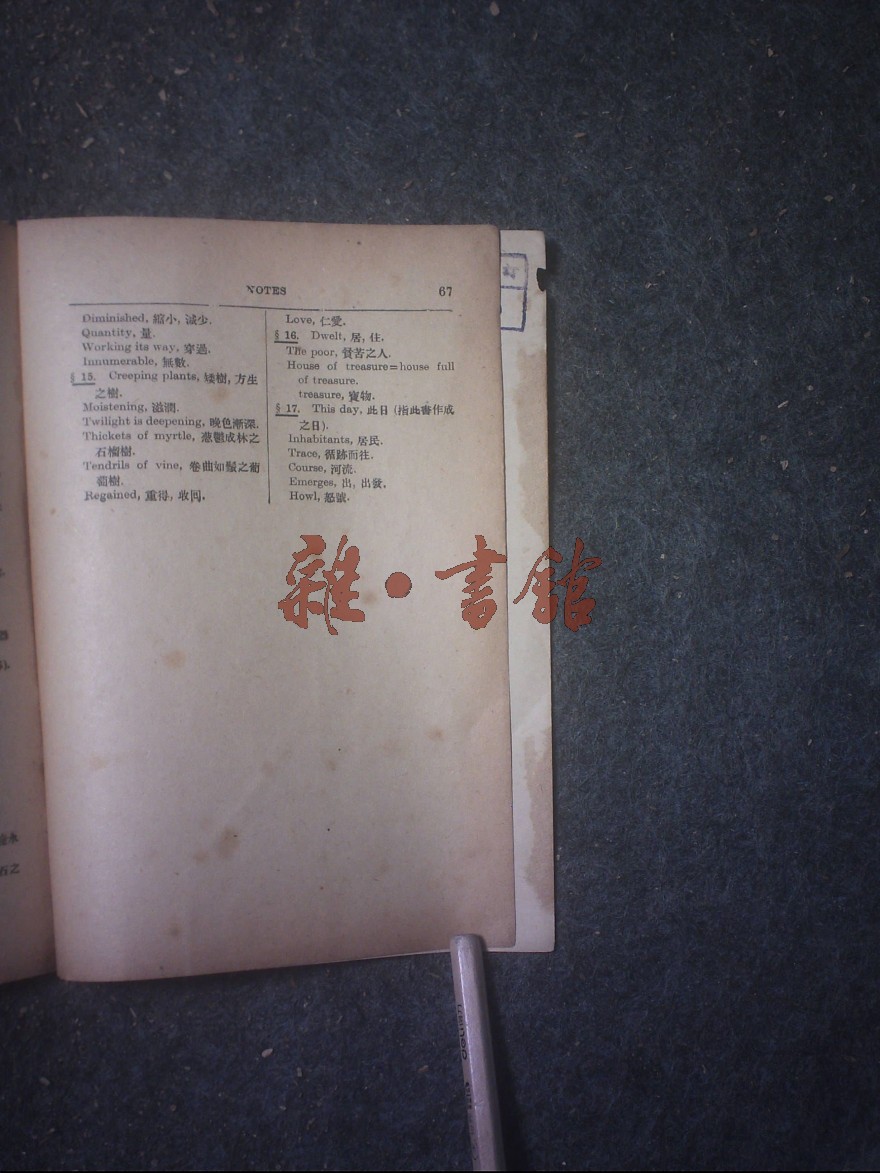 NOTES 67
Diminished, 縮小, 減少.
Quantity, 量.
Working its way, 穿過.
Innumerable, 無數.
§ 15. Creeping plants, 矮樹, 方生
之樹.
Moistening, 滋潤.
Twilight is deepening, 晚色漸深.
Thickets of myrtle, 叢鬱成林之
石榴樹.
Tendrils of vine, 卷曲如鬚之葡
萄樹.
Regained, 重得, 收回.
Love, 仁愛.
§ 16. Dwelt, 居, 住.
The poor, 貧苦之人.
House of treasure=house full
of treasure.
treasure, 寶物.
§ 17. This day, 此日 (指此書作成
之日).
Inhabitants, 居民.
Trace, 循跡而往.
Course, 河流.
Emerges, 出, 出發.
Howl, 怒號.
雜·書館